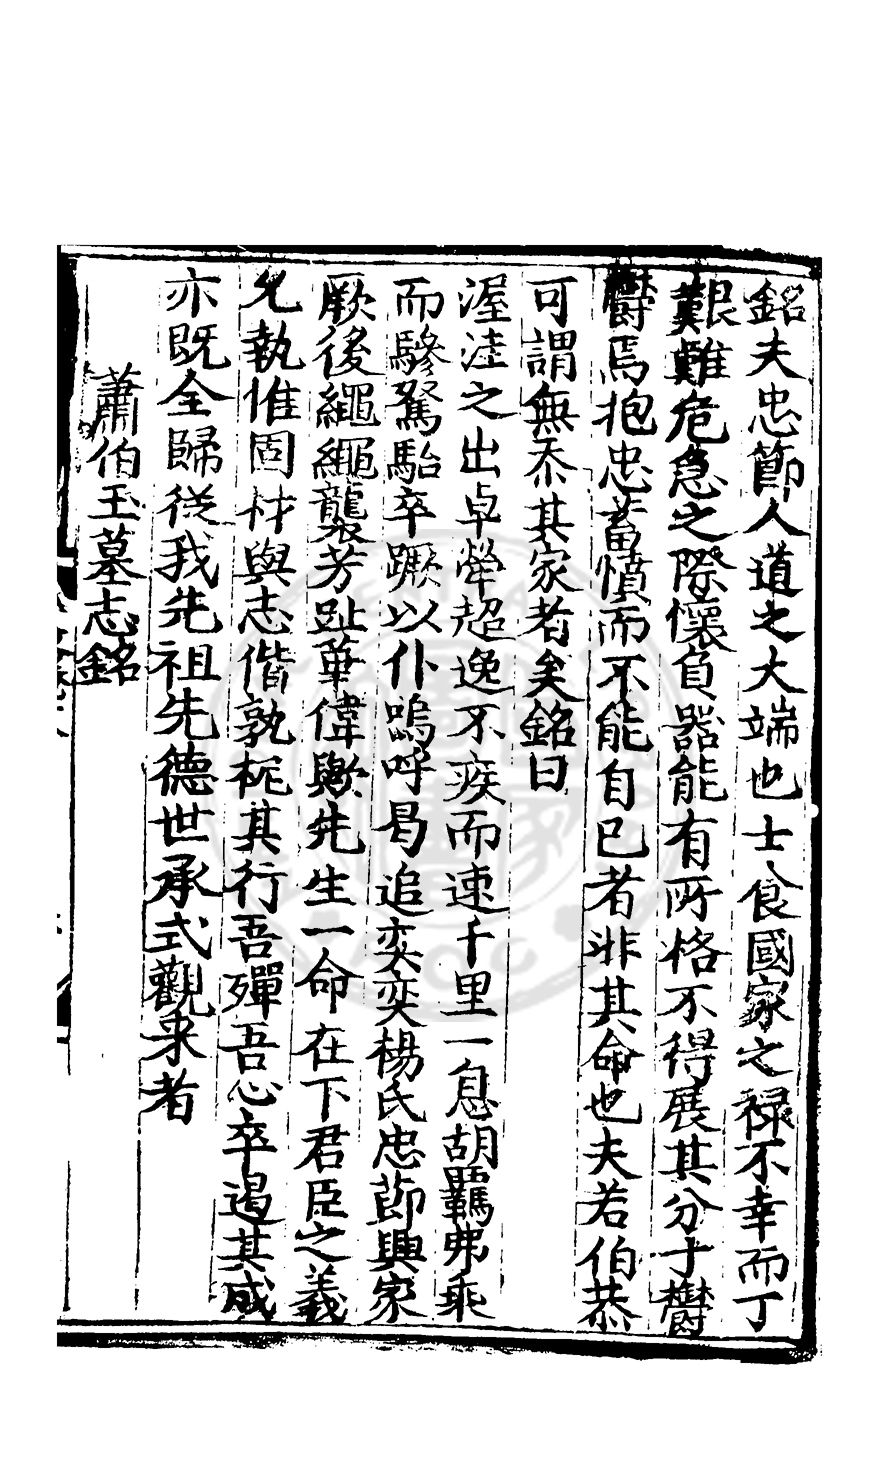 銘夫忠節人道之大端也士食國家之禄不幸而丁
艱難危急之際懷負器能有所格不得展其分寸欝
欝焉抱忠蓄憤而不能自已者非其命也夫若伯恭
可謂無忝其家者矣銘曰
渥洼之出卓犖超逸不疾而速千里一息胡羈弗乘
而驂駑駘卒蹶以仆嗚呼曷追奕奕楊氏忠節興家
厥後繩繩襲芳趾華偉歟先生一命在下君臣之義
允執惟固材與志偕孰柅其行吾殫吾心卒遏其成
亦既全歸從我先祖先德世承式觀來者
蕭伯玉墓志銘